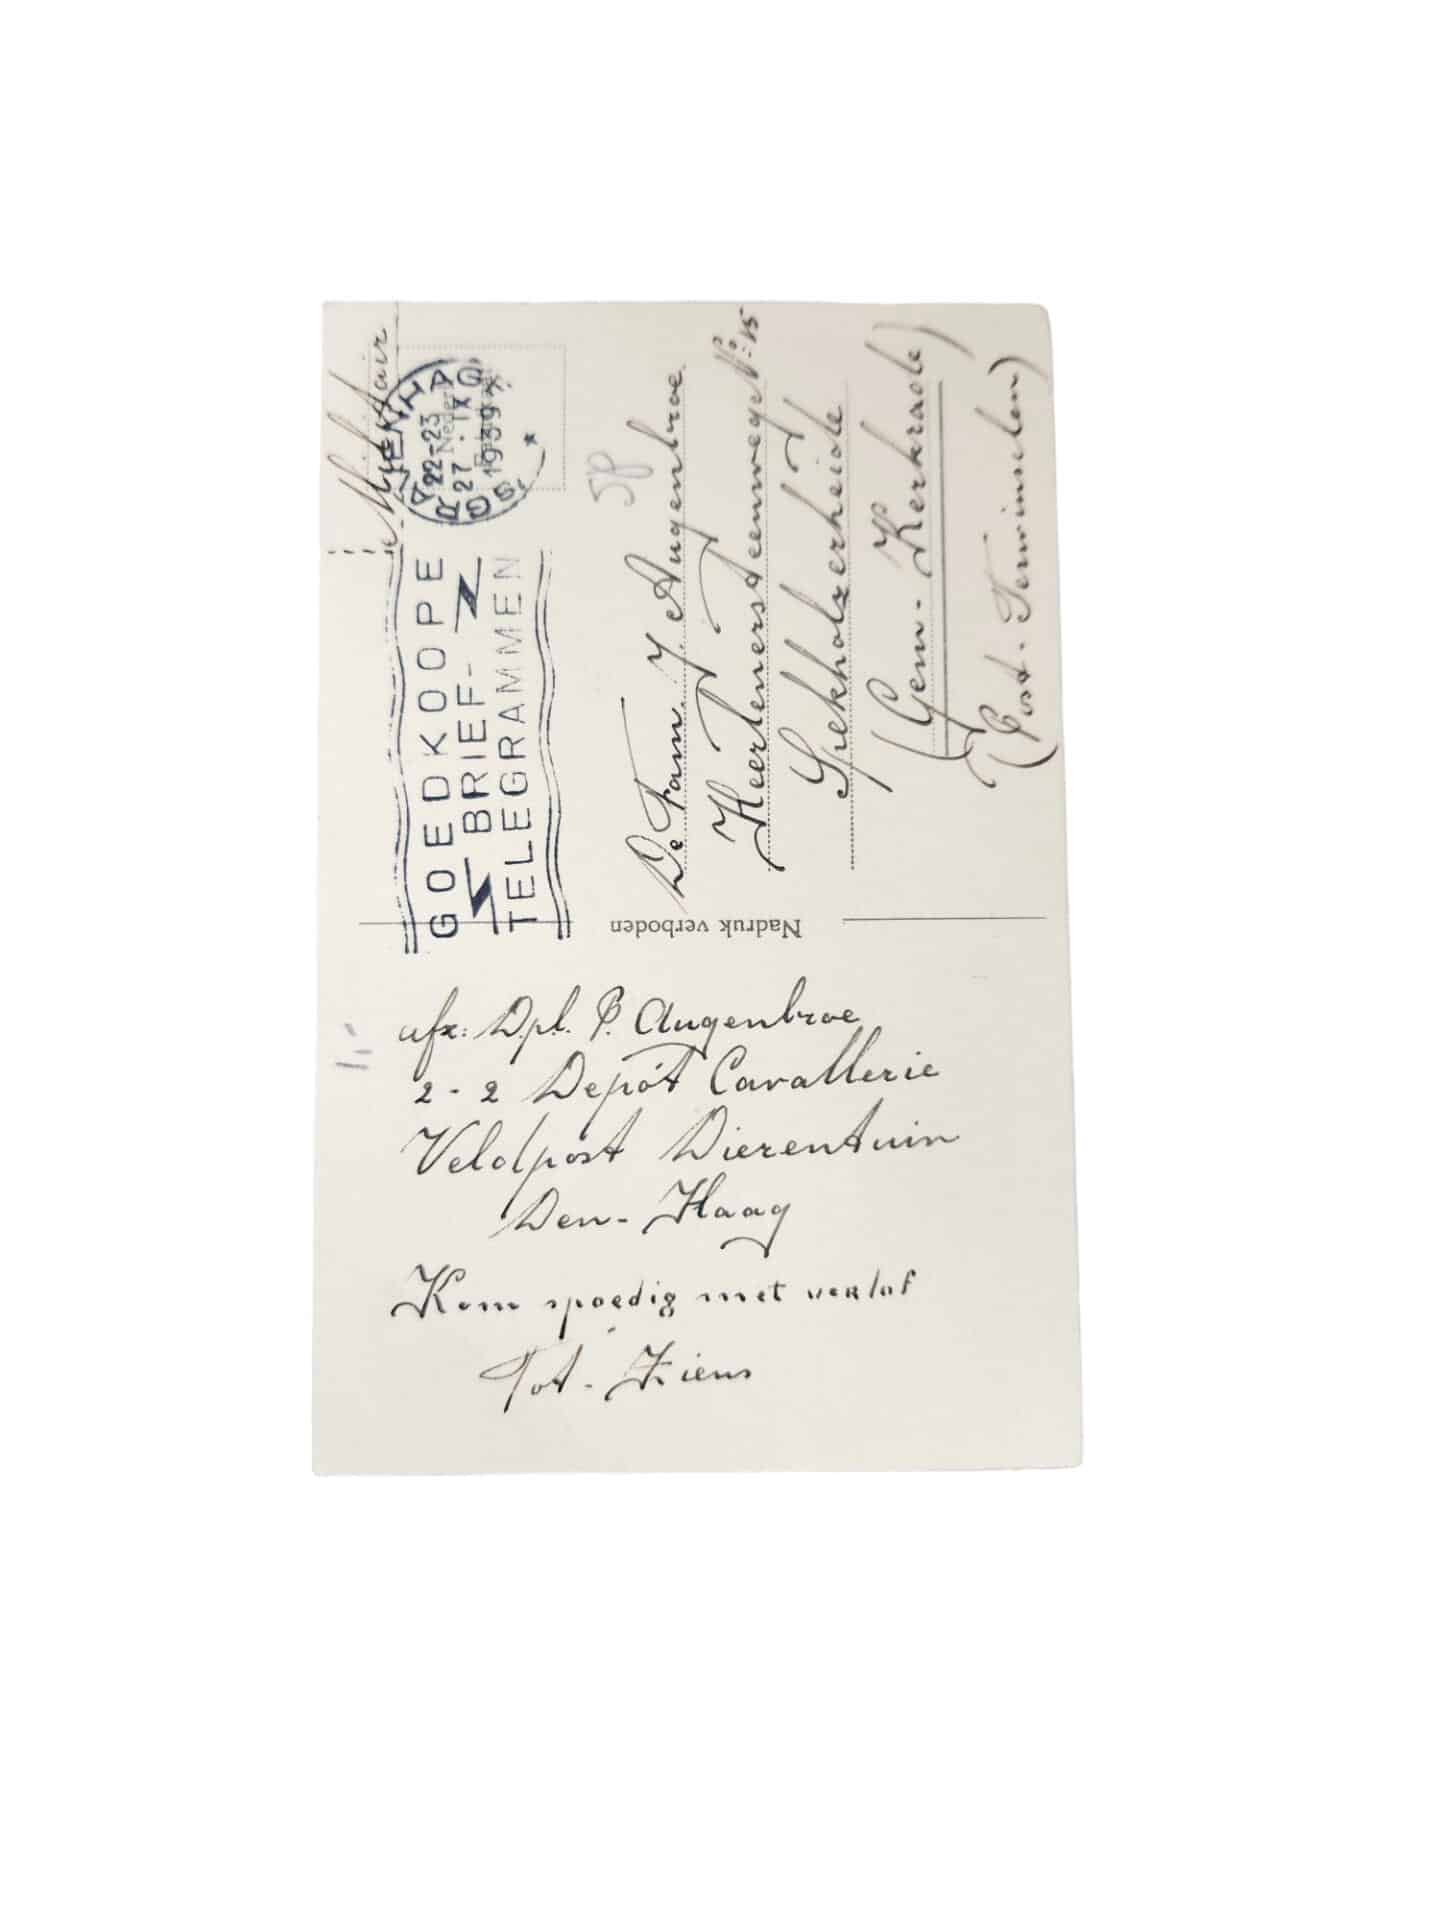 Militair
'SGRAVENHAGE
22-23
27 · IX
1939
GOEDKOOPE
BRIEF-
TELEGRAMMEN
De Fam. J. Augenbroe
Heerlensteenweg No: 15
Spekholzerheide
(Gem. Kerkrade)
(Post. Terwinselen)
Nadruk verboden
afz: Dpl. P. Augenbroe
2-2 Depôt Cavallerie
Veldpost Dierentuin
Den-Haag
Kom spoedig met verlof
Tot-Ziens
1,-